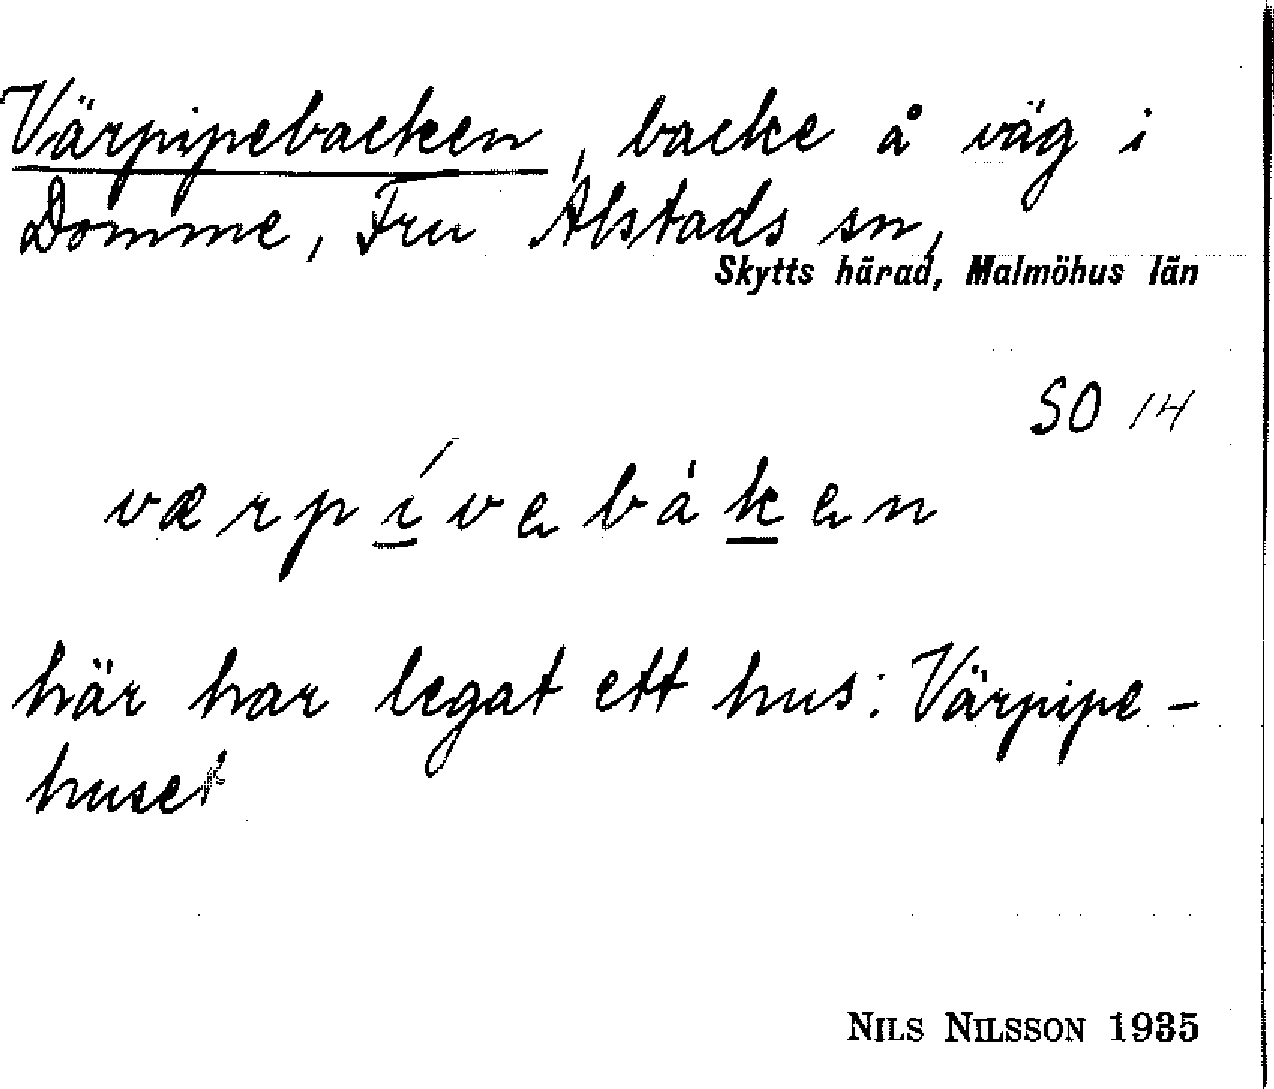 Värpipebacken, backe å väg i
Domme, Fru Alstads sn,
Skytts härad, Malmöhus län
SO 14
værpívebàken
här har legat ett hus: Värpipe-
huset
NILS NILSSON 1935